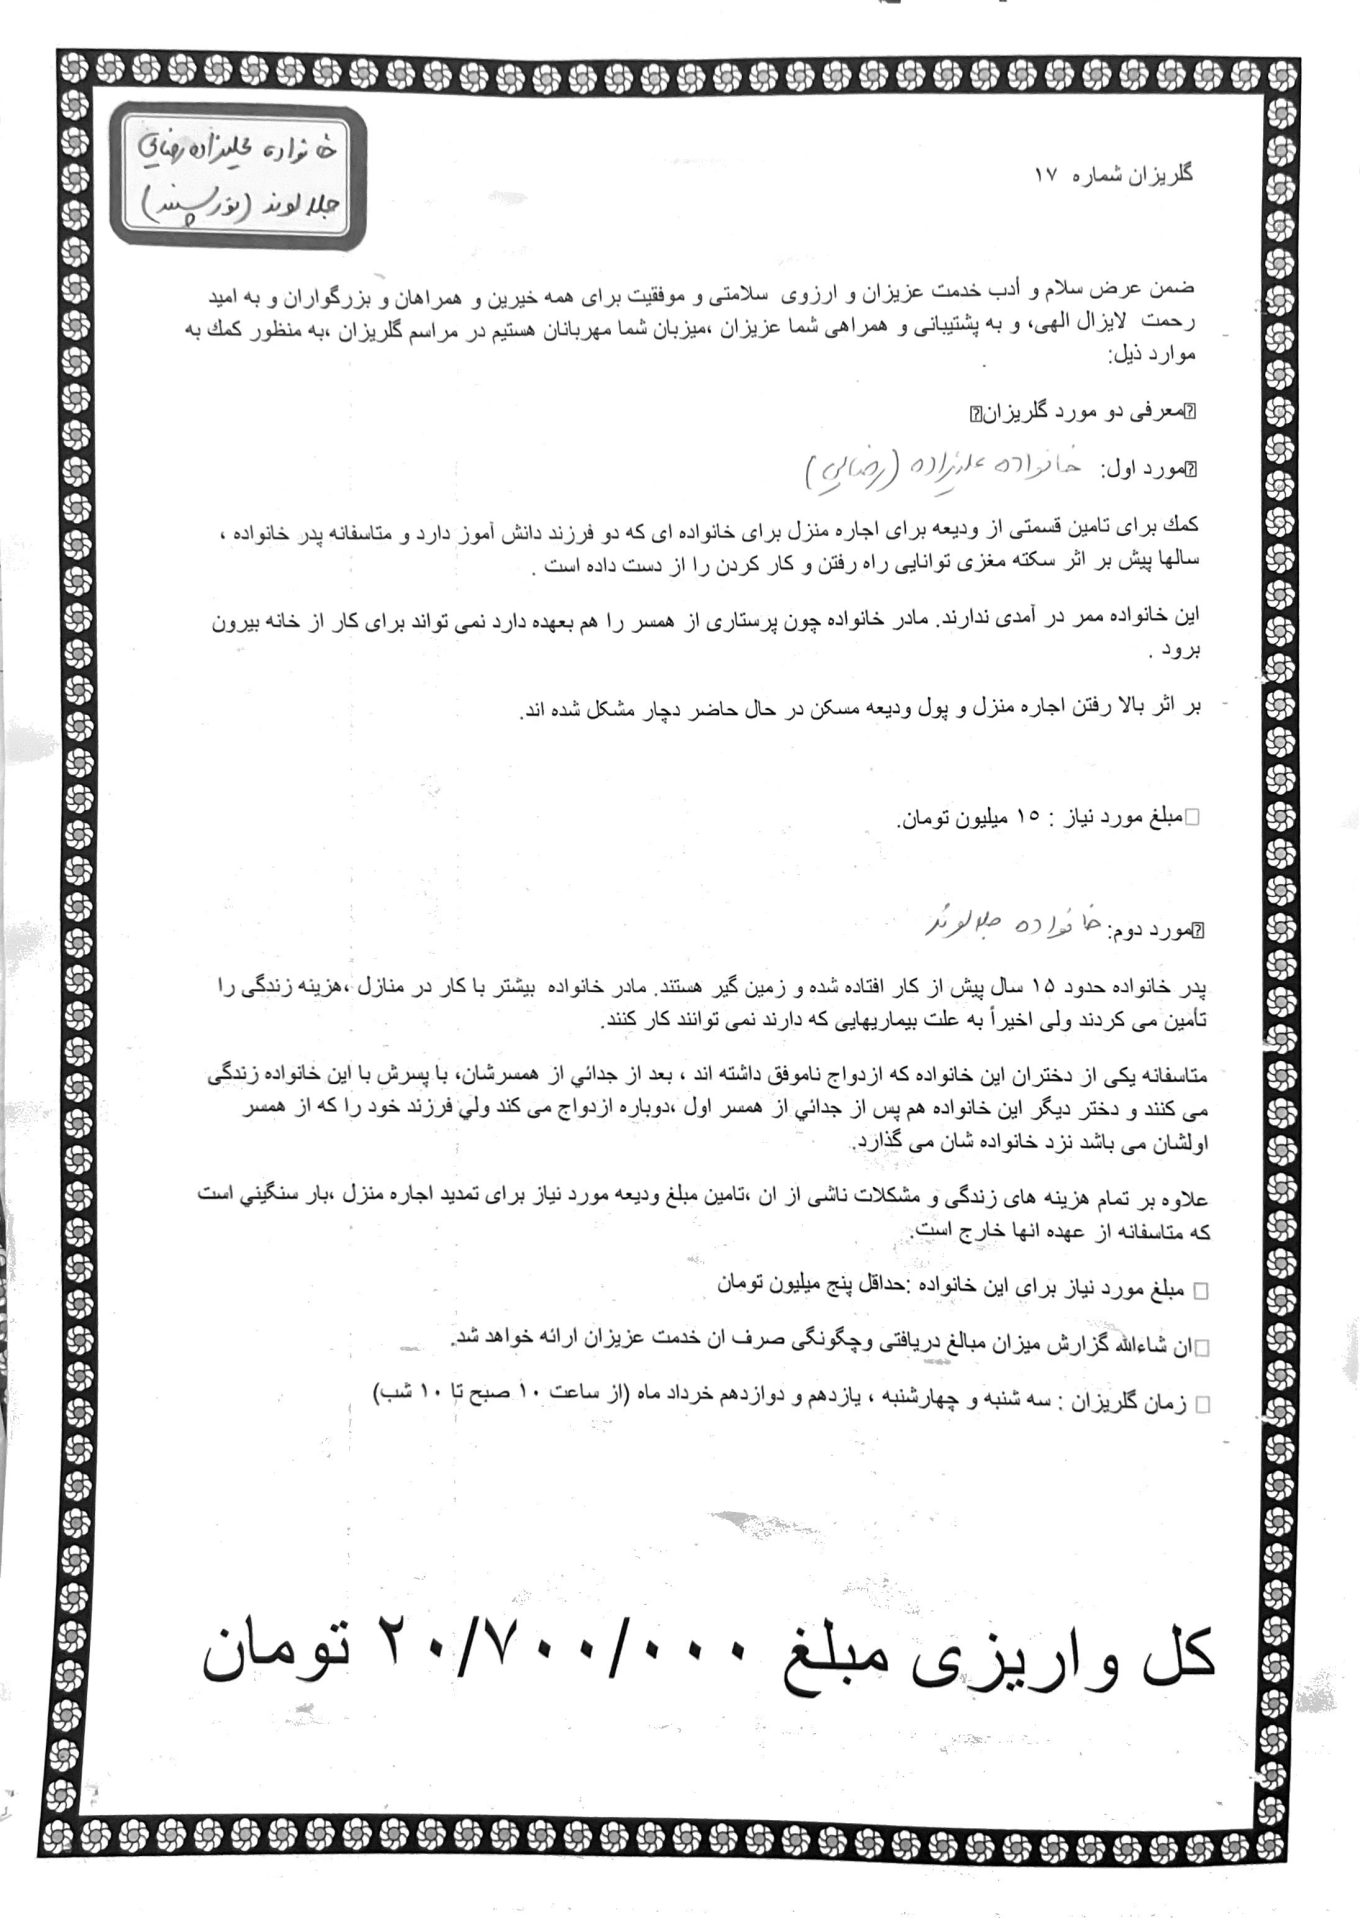 خانواده علیزاده رضایی
جلالوند (نورسپند)
گلریزان شماره ۱۷
ضمن عرض سلام و أدب خدمت عزیزان و ارزوی سلامتی و موفقیت برای همه خیرین و همراهان و بزرگواران و به امید
رحمت لایزال الهی، و به پشتیبانی و همراهی شما عزیزان ،میزبان شما مهربانان هستیم در مراسم گلریزان ،به منظور کمك به
موارد ذیل:
معرفی دو مورد گلریزان
مورد اول: خانواده علیزاده (رضایی)
کمك برای تامین قسمتی از ودیعه برای اجاره منزل برای خانواده ای که دو فرزند دانش آموز دارد و متاسفانه پدر خانواده ،
سالها پیش بر اثر سکته مغزی توانایی راه رفتن و کار کردن را از دست داده است .
این خانواده ممر در آمدی ندارند. مادر خانواده چون پرستاری از همسر را هم بعهده دارد نمی تواند برای کار از خانه بیرون
برود .
بر اثر بالا رفتن اجاره منزل و پول ودیعه مسکن در حال حاضر دچار مشکل شده اند.
□مبلغ مورد نیاز : ۱۵ میلیون تومان.
مورد دوم: خانواده جلالوند
پدر خانواده حدود ۱۵ سال پیش از کار افتاده شده و زمین گیر هستند. مادر خانواده بیشتر با کار در منازل ،هزینه زندگی را
تأمین می کردند ولی اخیراً به علت بیماریهایی که دارند نمی توانند کار کنند.
متاسفانه یکی از دختران این خانواده که ازدواج ناموفق داشته اند ، بعد از جدائي از همسرشان، با پسرش با این خانواده زندگی
می کنند و دختر دیگر این خانواده هم پس از جدائي از همسر اول ،دوباره ازدواج می کند ولي فرزند خود را که از همسر
اولشان می باشد نزد خانواده شان می گذارد.
علاوه بر تمام هزینه های زندگی و مشکلات ناشی از ان ،تامین مبلغ ودیعه مورد نیاز برای تمدید اجاره منزل ،بار سنگیني است
که متاسفانه از عهده انها خارج است.
□ مبلغ مورد نیاز برای این خانواده :حداقل پنج میلیون تومان
□ان شاءالله گزارش میزان مبالغ دریافتی وچگونگی صرف ان خدمت عزیزان ارائه خواهد شد.
□ زمان گلریزان : سه شنبه و چهارشنبه ، یازدهم و دوازدهم خرداد ماه (از ساعت ۱۰ صبح تا ۱۰ شب)
کل واریزی مبلغ ۲۰/۷۰۰/۰۰۰ تومان